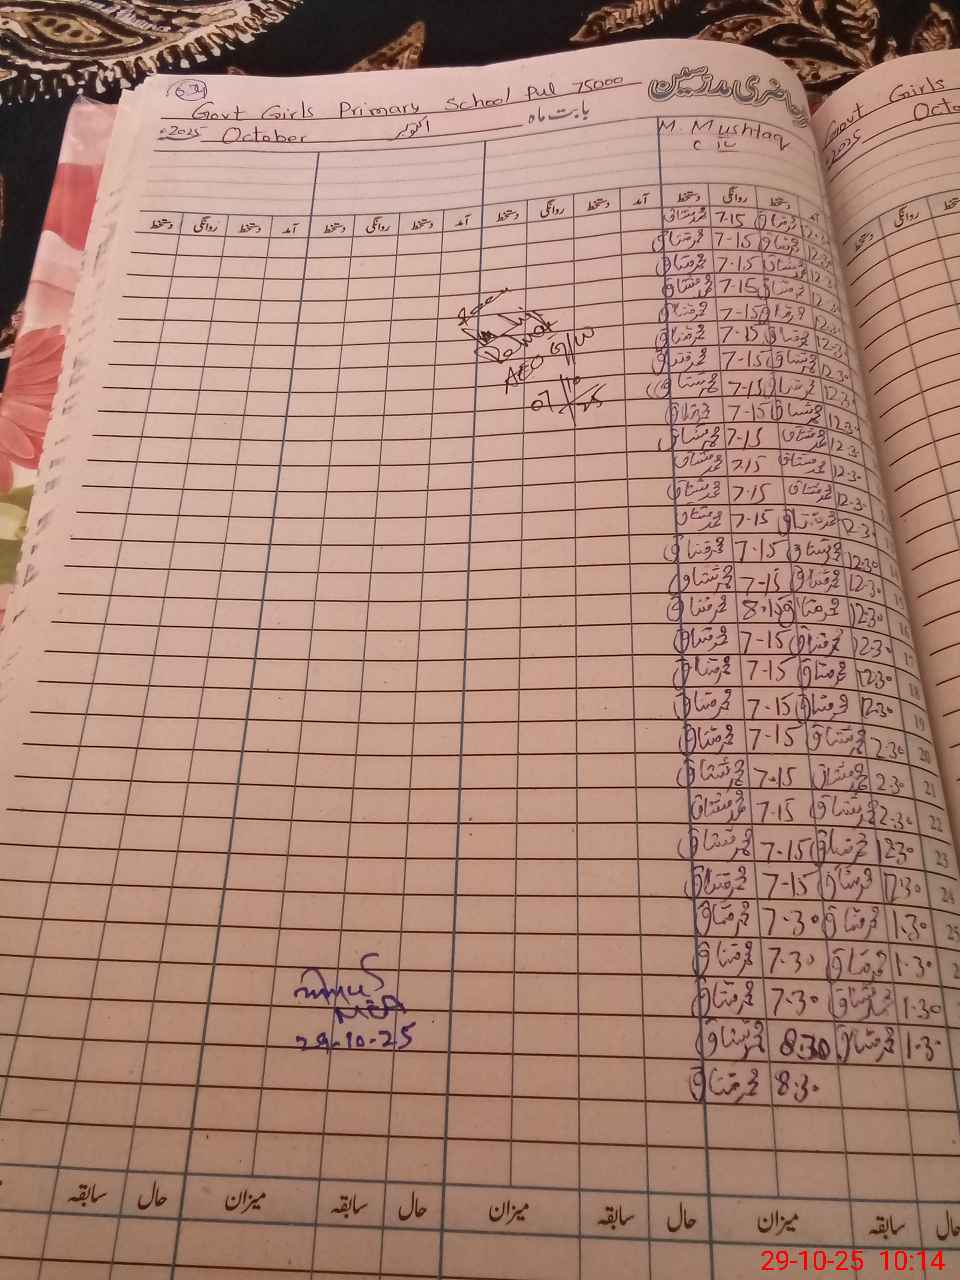 Govt Girls Primary School Pul 75000
حاضری مدرسین
2025 October اکتوبر بابت ماہ
M. Mushtaq
آمد دستخط روانگی دستخط آمد دستخط روانگی دستخط آمد دستخط روانگی دستخط آمد دستخط روانگی دستخط
12.30 محمد مشتاق 7-15 محمد مشتاق
12.30 محمد مشتاق 7-15 محمد مشتاق
12.30 محمد مشتاق 7-15 محمد مشتاق
12.30 محمد مشتاق 7-15 محمد مشتاق
12.30 محمد مشتاق 7-15 محمد مشتاق
12.30 محمد مشتاق 7-15 محمد مشتاق
12.30 محمد مشتاق 7-15 محمد مشتاق
12.30 محمد مشتاق 7-15 محمد مشتاق
12.30 محمد مشتاق 7-15 محمد مشتاق
12.30 محمد مشتاق 7-15 محمد مشتاق
12.30 محمد مشتاق 7.15 محمد مشتاق
12.30 محمد مشتاق 7.15 محمد مشتاق
12.30 محمد مشتاق 7-15 محمد مشتاق
12.30 محمد مشتاق 7.15 محمد مشتاق
12.30 محمد مشتاق 7-15 محمد مشتاق
16 12.30 محمد مشتاق 8.15 محمد مشتاق
17 12.30 محمد مشتاق 7-15 محمد مشتاق
18 12.30 محمد مشتاق 7-15 محمد مشتاق
19 12.30 محمد مشتاق 7-15 محمد مشتاق
20 2.30 محمد مشتاق 7-15 محمد مشتاق
21 2.30 محمد مشتاق 7.15 محمد مشتاق
22 2.30 محمد مشتاق 7.15 محمد مشتاق
23 1230 محمد مشتاق 7-15 محمد مشتاق
24 12.30 محمد مشتاق 7-15 محمد مشتاق
25 1.30 محمد مشتاق 7.30 محمد مشتاق
1.30 محمد مشتاق 7.30 محمد مشتاق
1.30 محمد مشتاق 7.30 محمد مشتاق
1.30 محمد مشتاق 8.30 محمد مشتاق
8.30 محمد مشتاق
AEO
07/10/25
MEA
29-10-25
حال سابقہ میزان حال سابقہ میزان حال سابقہ میزان حال سابقہ
Govt Girls
2025 Octo
روانگی دستخط
29-10-25 10:14